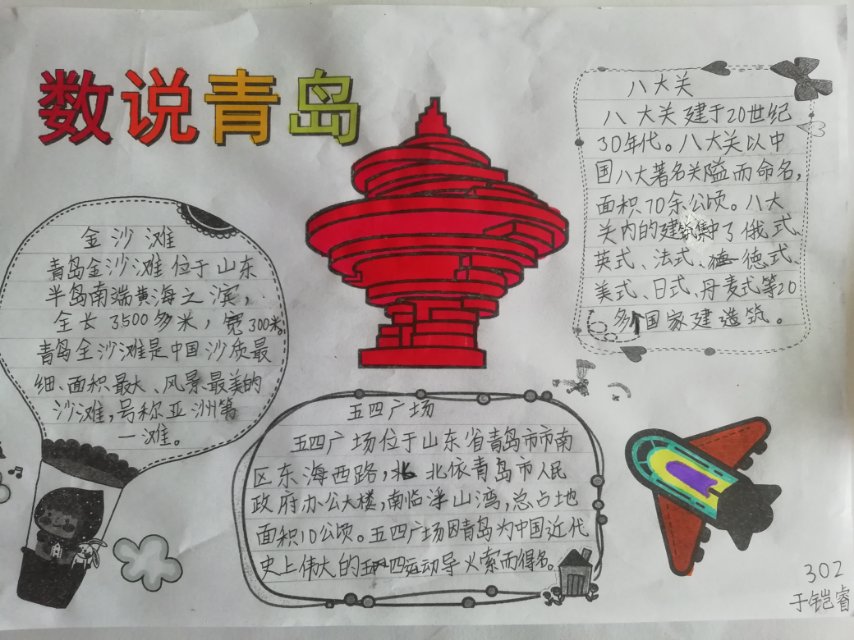 数说青岛
金沙滩
青岛金沙滩位于山东
半岛南端黄海之滨，
全长3500多米，宽300米。
青岛金沙滩是中国沙质最
细、面积最大、风景最美的
沙滩，号称亚洲第
一滩。
八大关
八大关建于20世纪
30年代。八大关以中
国八大著名关隘而命名，
面积70余公顷。八大
关内的建筑集中了俄式、
英式、法式、德式、
美式、日式、丹麦式等20
多个国家建造筑。
五四广场
五四广场位于山东省青岛市市南
区东海西路，北依青岛市人民
政府办公大楼，南临浮山湾，总占地
面积10公顷。五四广场因青岛为中国近代
史上伟大的五四运动导火索而得名。
302
于铠睿